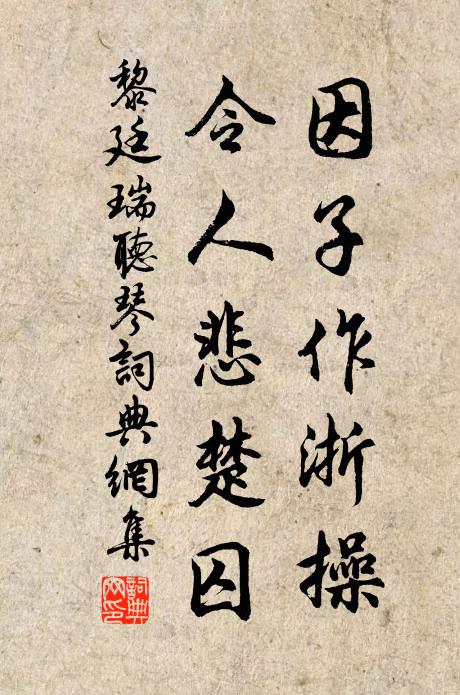 因子作淅操
令人悲楚囚
黎廷瑞聽琴詞典網集
詞典
網印